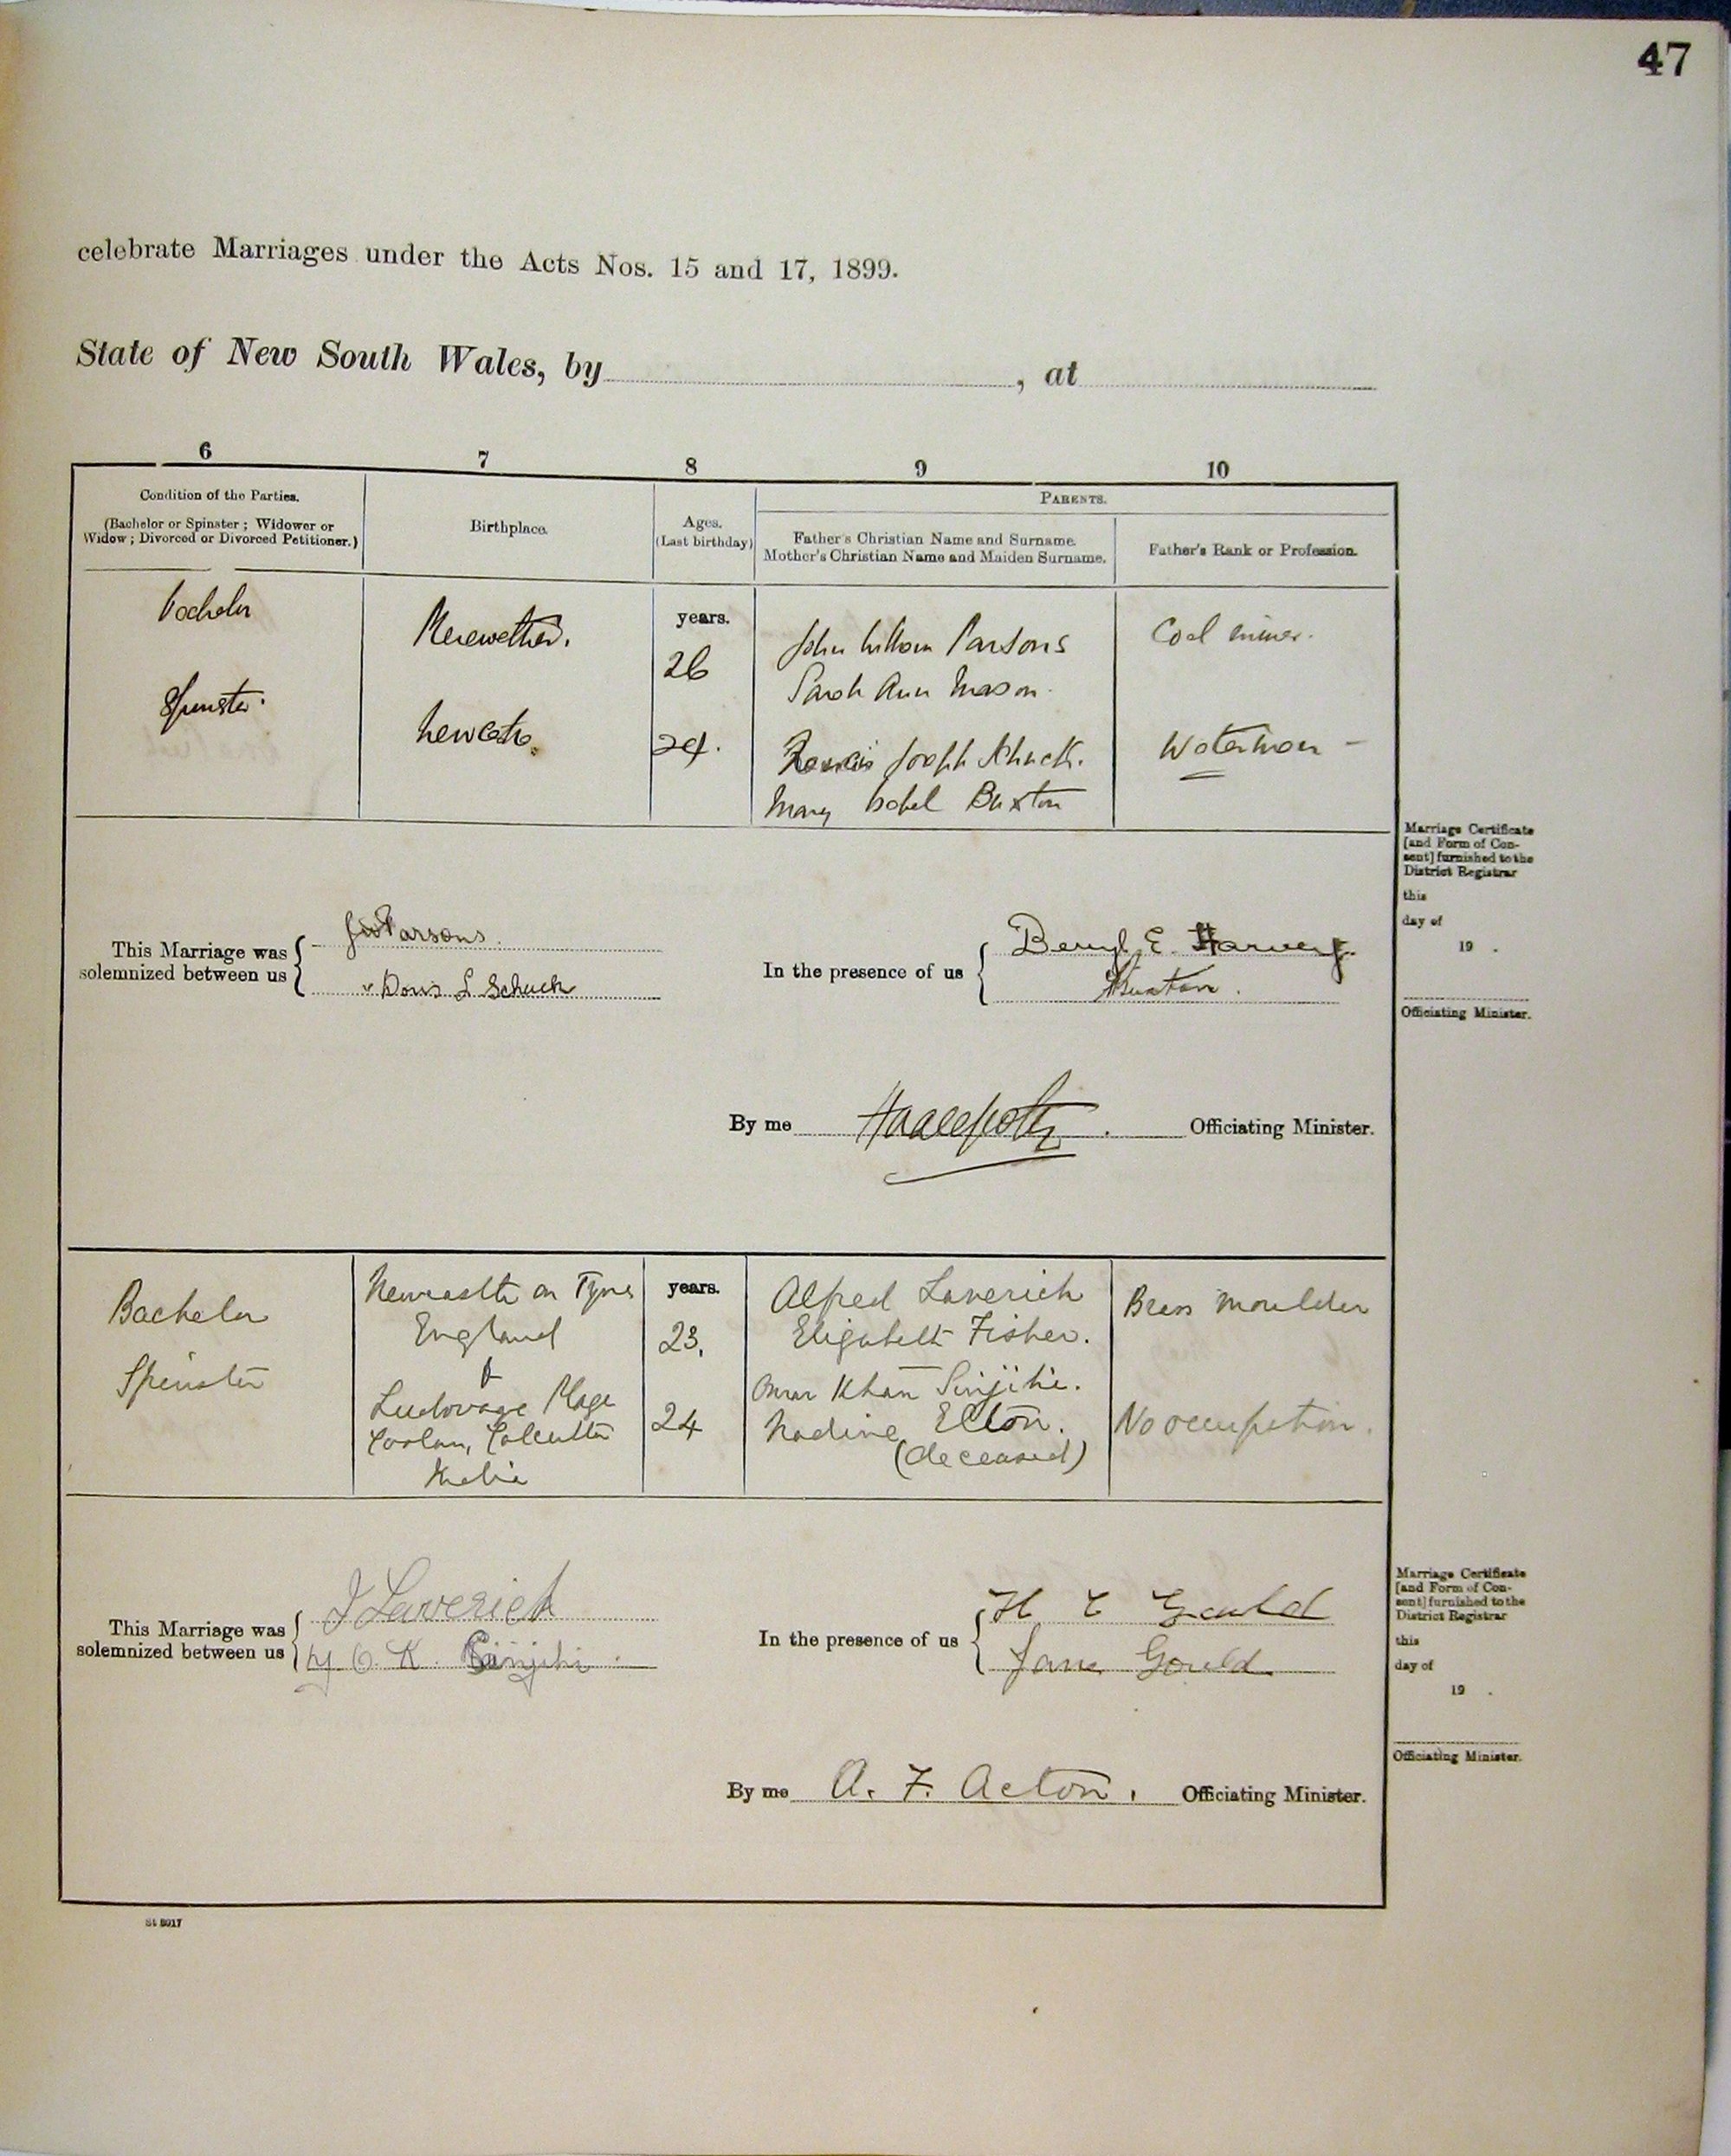 47
celebrate Marriages under the Acts Nos. 15 and 17, 1899.
State of New South Wales, by , at
6 7 8 9 10
Condition of the Parties.
(Bachelor or Spinster ; Widower or
Widow ; Divorced or Divorced Petitioner.)
Birthplace.
Ages.
(Last birthday)
PARENTS.
Father's Christian Name and Surname.
Mother's Christian Name and Maiden Surname.
Father's Rank or Profession.
Bachelor
Merewether.
years.
26
John William Parsons
Sarah Ann Mason.
Coal miner.
Spinster.
Newcastle.
24.
Francis Joseph Schuck.
Mary Isobel Buxton
Waterman -
This Marriage was
solemnized between us
J W Parsons.
Doris L Schuck
In the presence of us
Beryl E. Harvey.
Buxton.
By me Officiating Minister.
Marriage Certificate
[and Form of Con-
sent] furnished to the
District Registrar
this
day of
19 .
Officiating Minister.
Bachelor
Newcastle on Tyne
England
years.
23.
Alfred Laverick
Elizabeth Fisher.
Brass Moulder
Spinster
&
Place
Calcutta
India
24
Omar Khan Sinjihi.
Nadine Elton.
(deceased)
No occupation.
This Marriage was
solemnized between us
J Laverick
O. K. Sinjihi.
In the presence of us
H E Gould
Jane Gould
By me A. F. Acton. Officiating Minister.
Marriage Certificate
[and Form of Con-
sent] furnished to the
District Registrar
this
day of
19 .
Officiating Minister.
St 8017